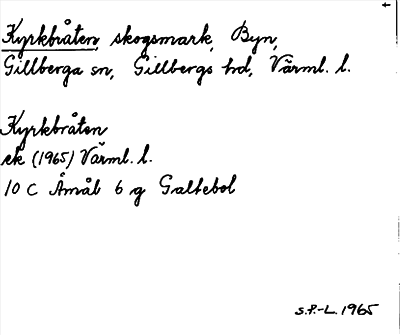 Kyrkbråten, skogsmark, Byn,
Gillberga sn, Gillbergs hrd, Värml. l.
Kyrkbråten
ek (1965) Värml. l.
10 C Åmål 6 g Galtebol
S.P.-L. 1965